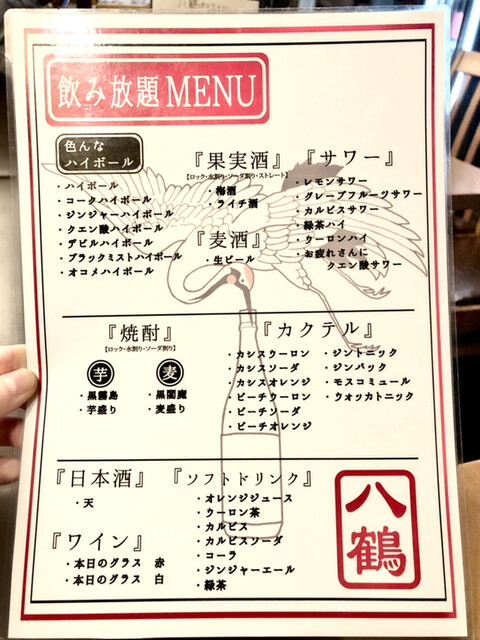 飲み放題 MENU
色んな
ハイボール
・ハイボール
・コークハイボール
・ジンジャーハイボール
・クエン酸ハイボール
・デビルハイボール
・ブラックミストハイボール
・オコメハイボール
『果実酒』
【ロック・水割り・ソーダ割り・ストレート】
・梅酒
・ライチ酒
『麦酒』
・生ビール
『サワー』
・レモンサワー
・グレープフルーツサワー
・カルピスサワー
・緑茶ハイ
・ウーロンハイ
・お疲れさんに
クエン酸サワー
『焼酎』
【ロック・水割り・ソーダ割り】
芋
・黒霧島
・芋盛り
麦
・黒閻魔
・麦盛り
『カクテル』
・カシスウーロン
・カシスソーダ
・カシスオレンジ
・ピーチウーロン
・ピーチソーダ
・ピーチオレンジ
・ジントニック
・ジンバック
・モスコミュール
・ウォッカトニック
『日本酒』
・天
『ワイン』
・本日のグラス 赤
・本日のグラス 白
『ソフトドリンク』
・オレンジジュース
・ウーロン茶
・カルピス
・カルピスソーダ
・コーラ
・ジンジャーエール
・緑茶
八鶴